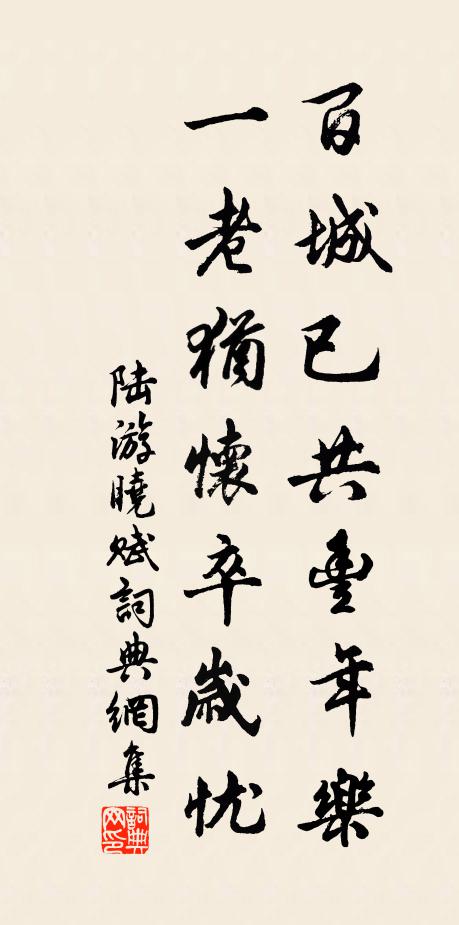 百城已共豐年樂
一老猶懷卒歲忧
陸游曉賦詞典網集
詞典网印